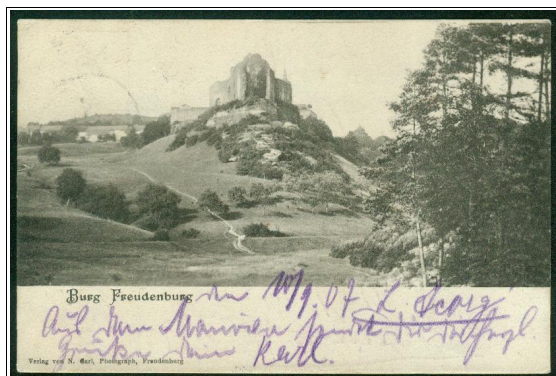 Burg Freudenburg den 10/9. 07. L. Georg
Aus dem Manöver sendet die herzl.
Grüße dein Karl.
Verlag von N. Carl, Photograph, Freudenburg